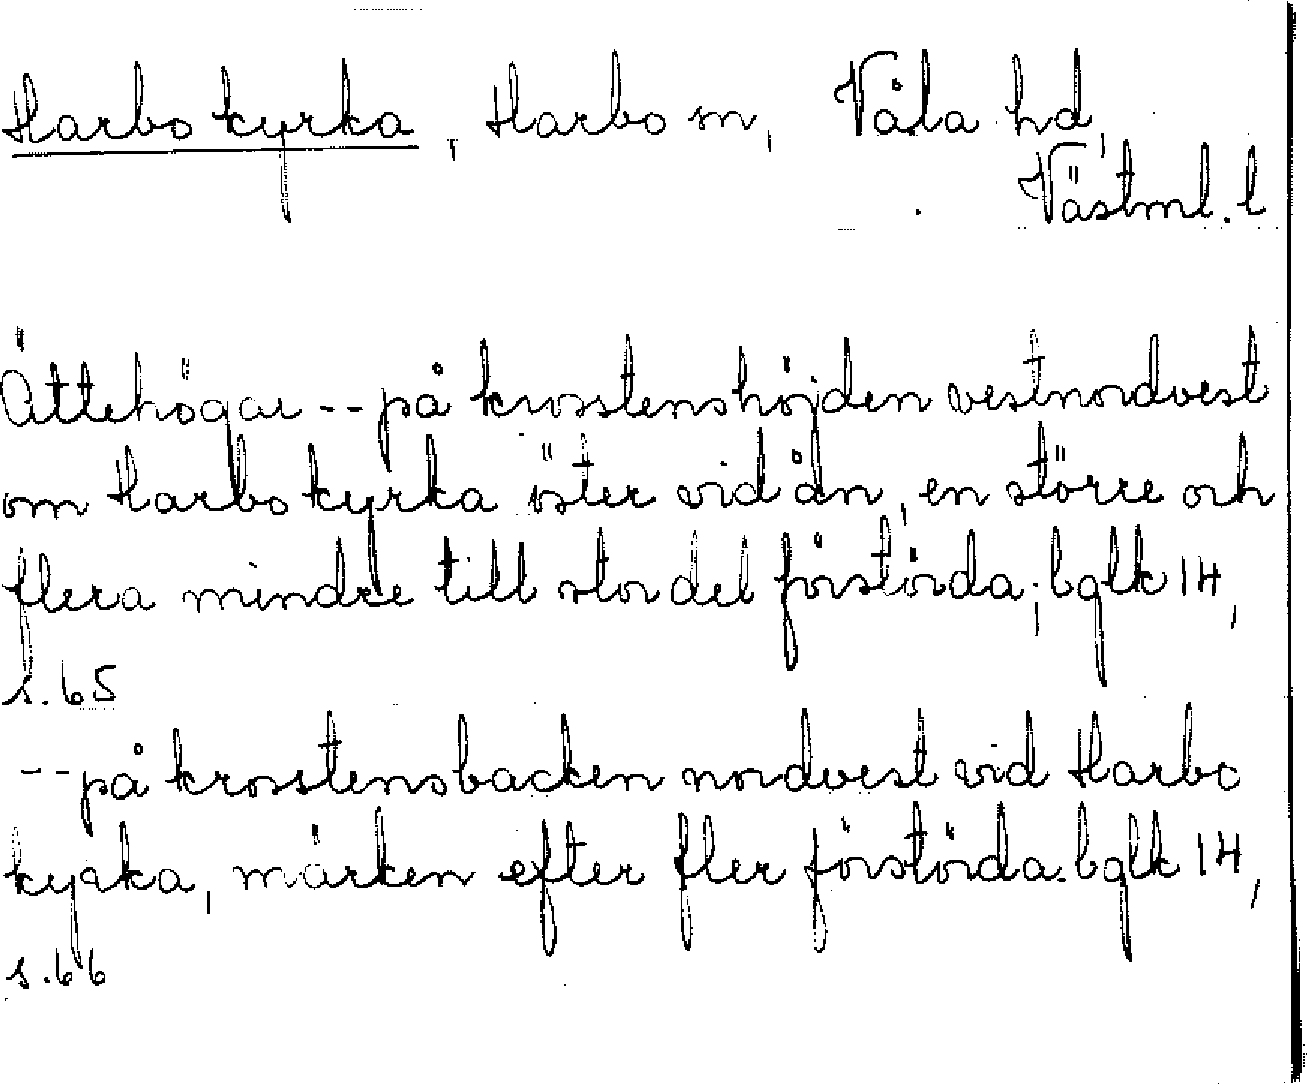 Harbo kyrka, Harbo sn, Våla hd,
Västml. l
Ättehögar -- på krosstenshöjden vestnordvest
om Harbo kyrka öster vid ån, en större och
flera mindre till stor del förstörda; bglk 14,
s. 65
-- på krosstensbacken nordvest vid Harbo
kyrka, märken efter fler förstörda. bglk 14,
s. 66